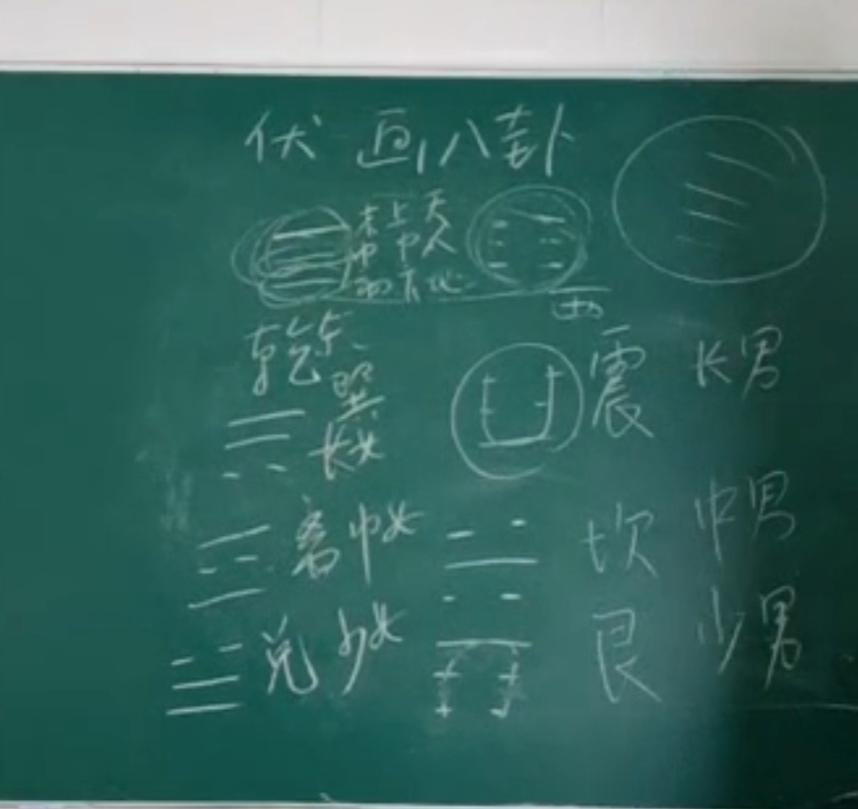 伏 画八卦
老上天
中中人
初下地
乾
巽
长女
震 长男
离中女
坎 中男
兑少女
艮 少男